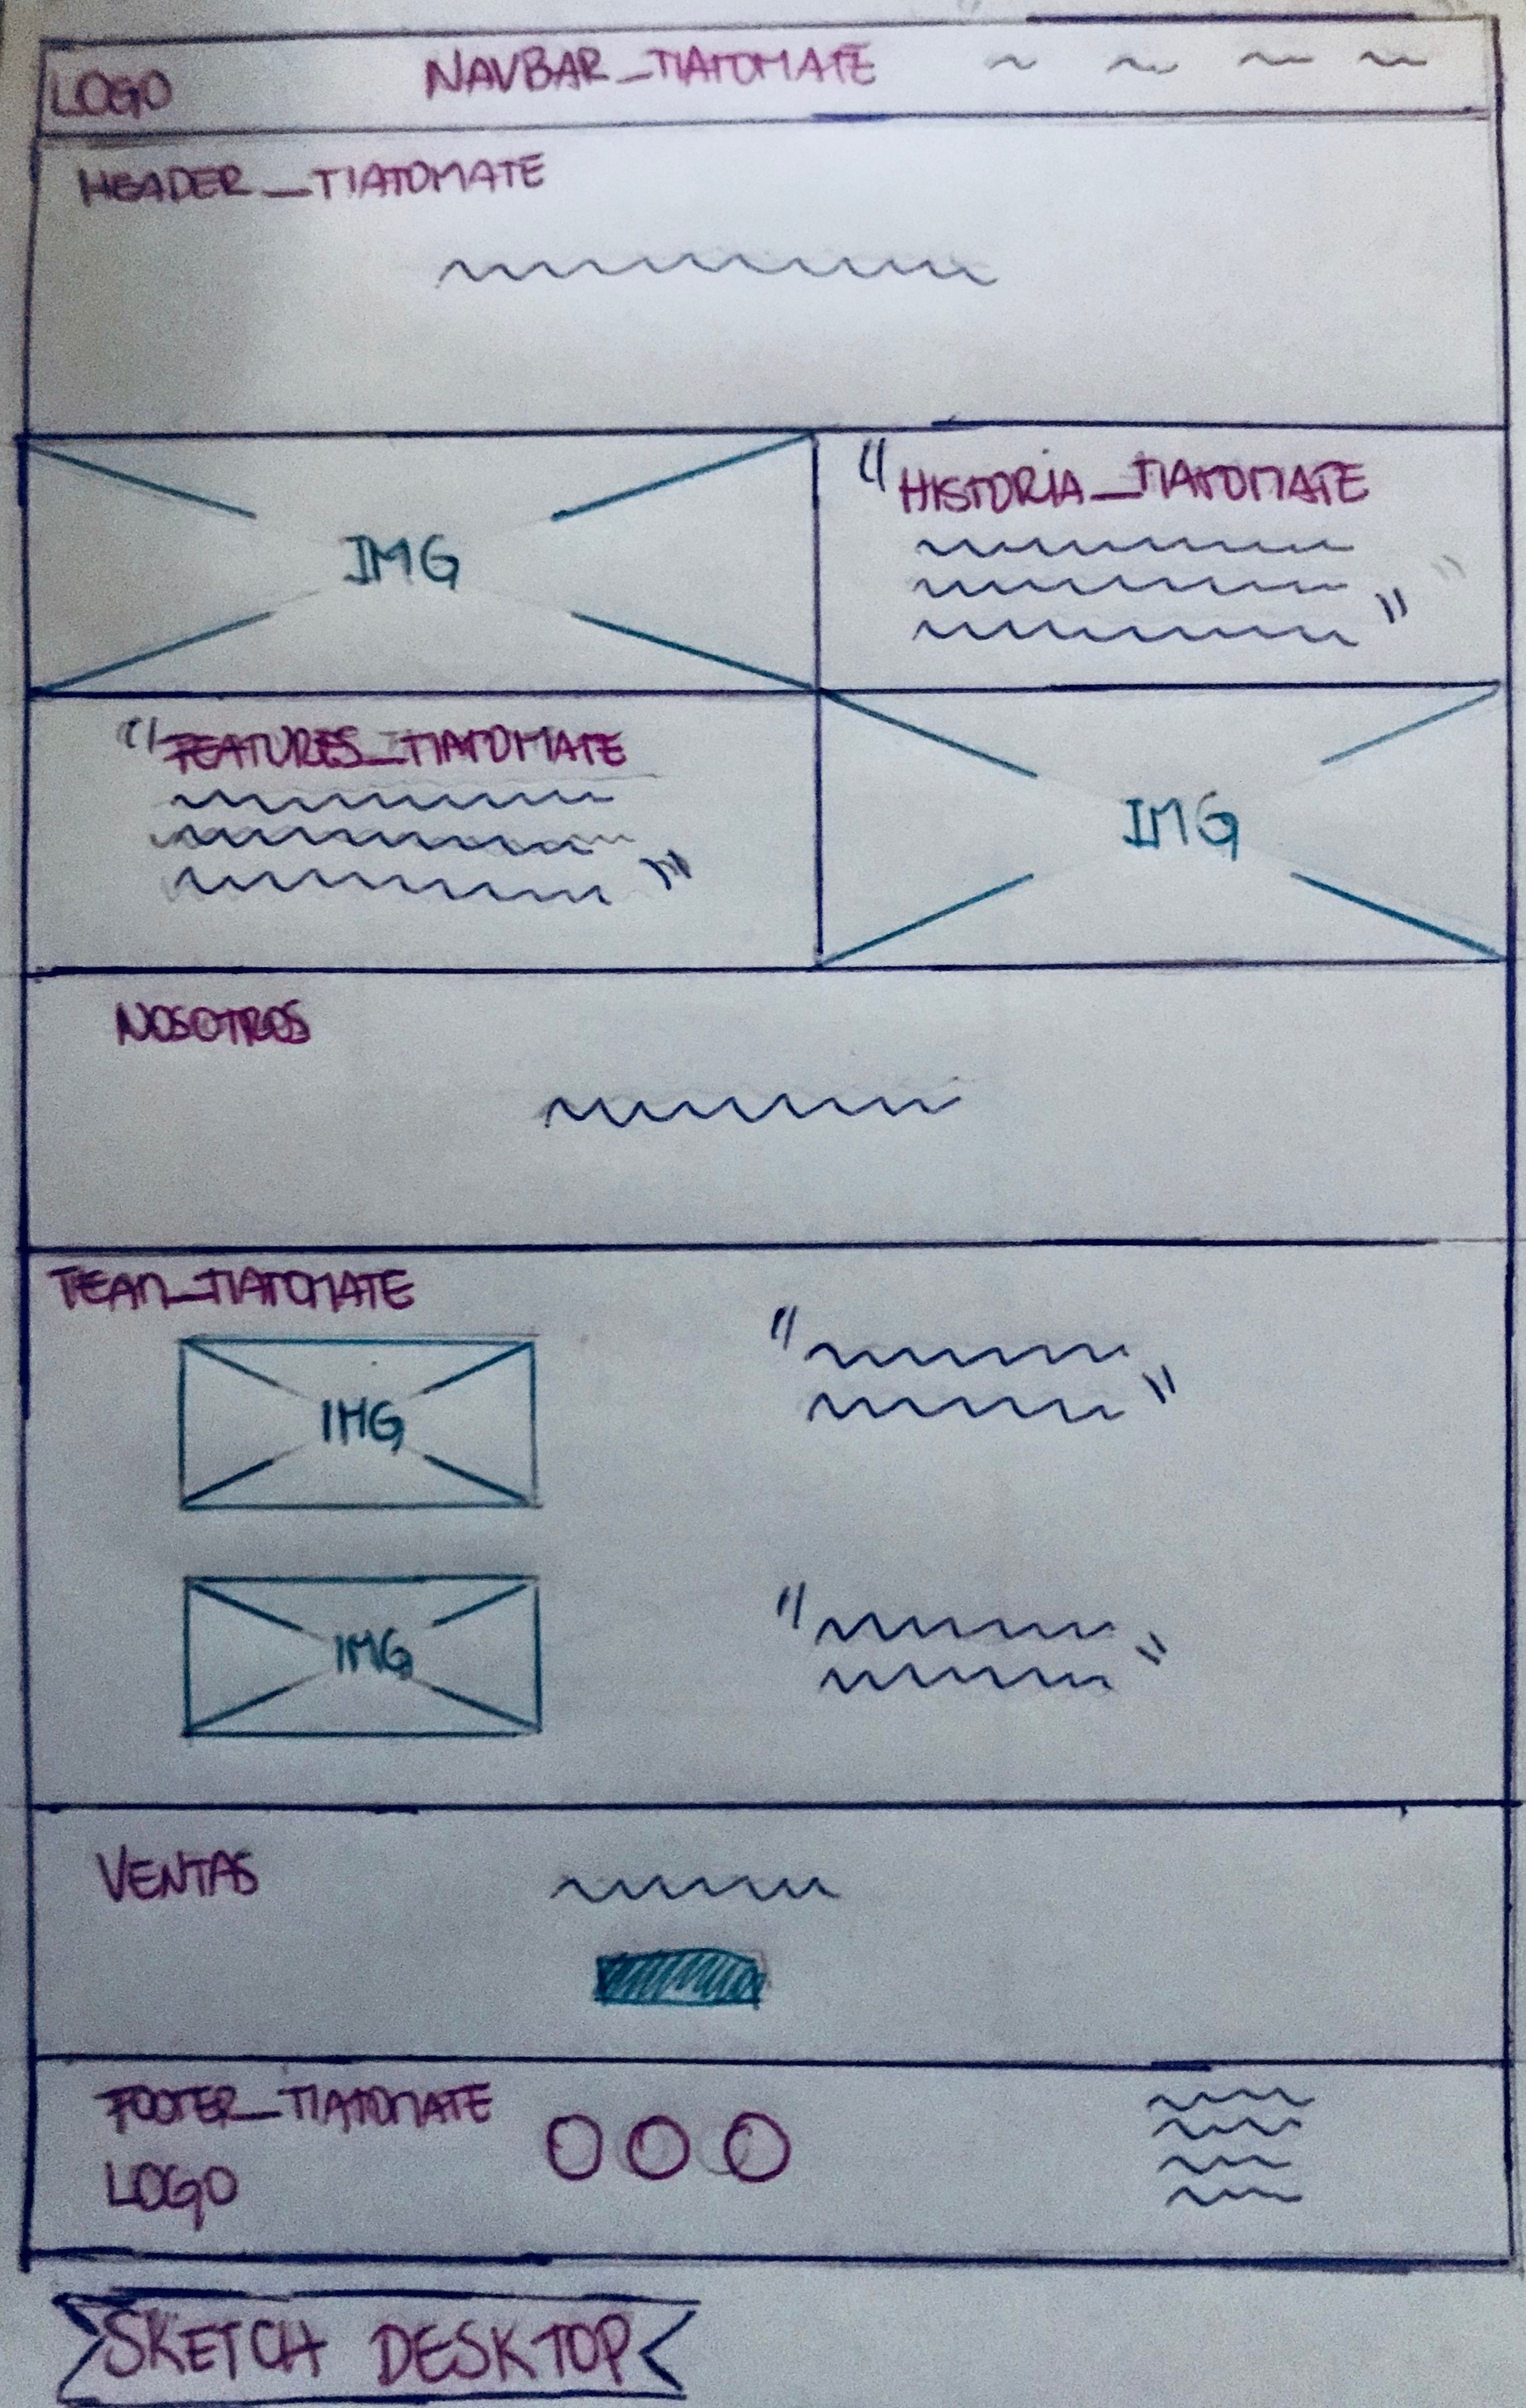 LOGO NAVBAR_TIATOMATE
HEADER_TIATOMATE
IMG
"HISTORIA_TIATOMATE
"
"FEATURES_TIATOMATE
"
IMG
NOSOTROS
TEAM_TIATOMATE
IMG
" "
IMG
" "
VENTAS
FOOTER_TIATOMATE
LOGO
SKETCH DESKTOP